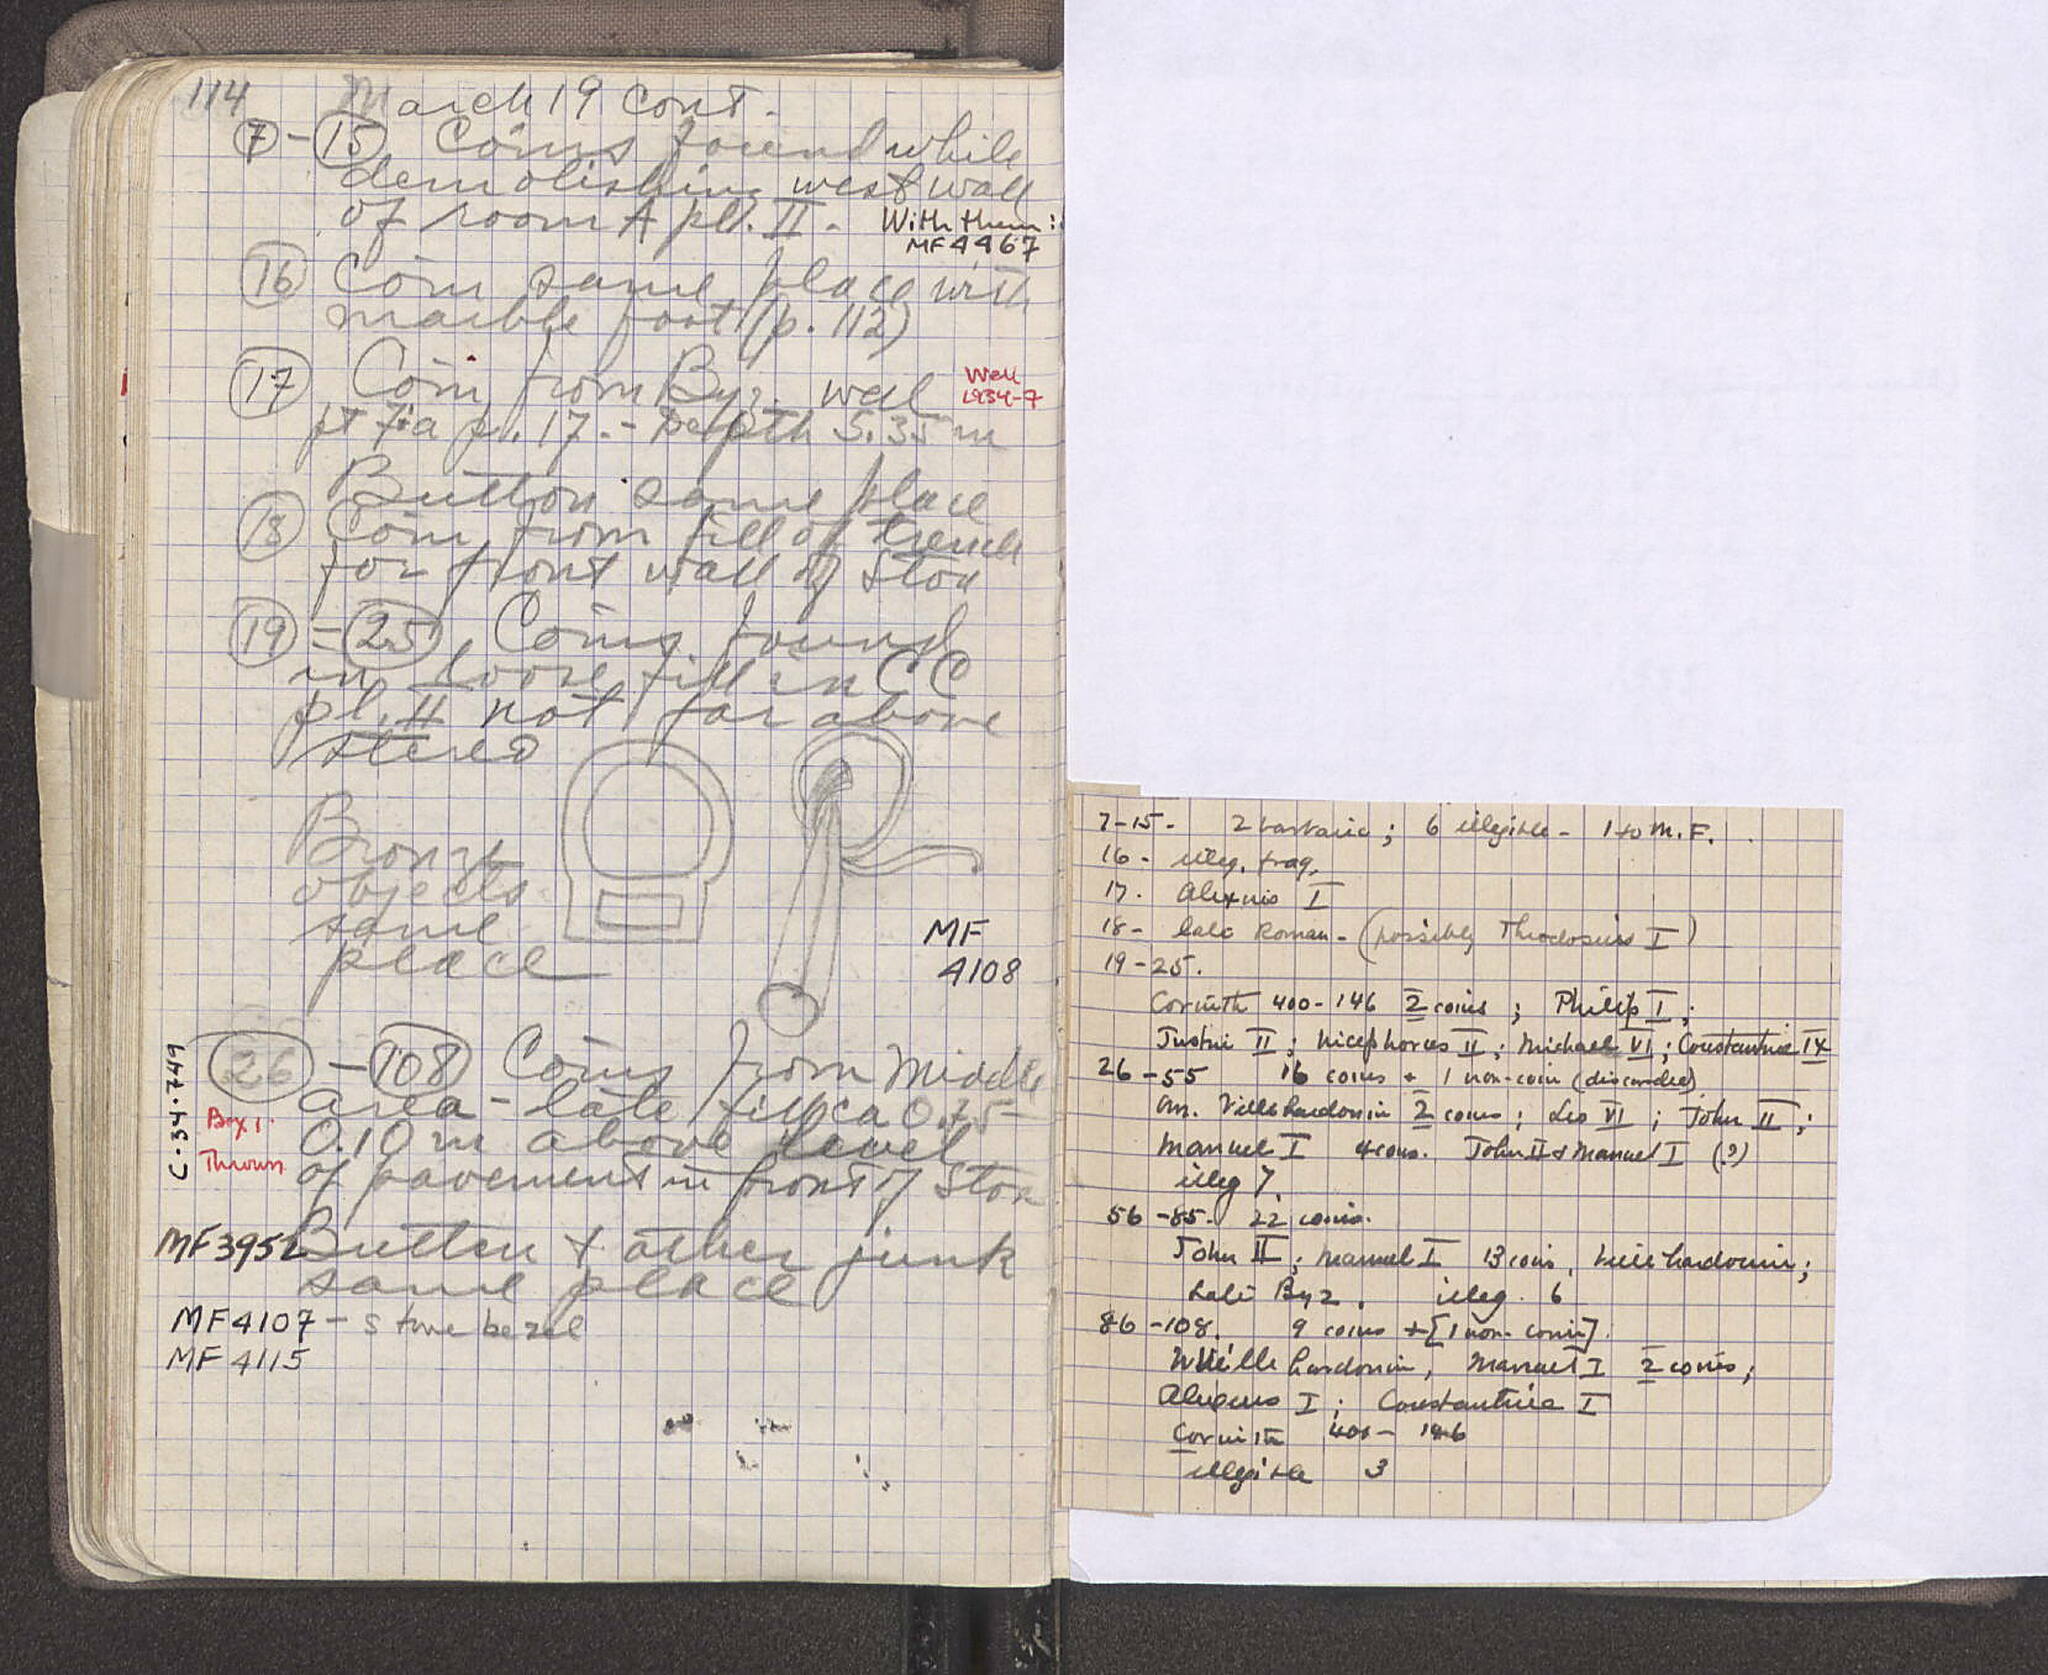 114 March 19 cont.
7 - 15 Coins found while
demolishing west wall
of room A pl. II. With them:
MF 4467
16 Coin same place with
marble foot (p. 112)
17 Coin from Byz. well Well
1934-7
pt 7a pl. 17. - Depth 5.35 m
Button same place
18 Coin from fill of trench
for front wall of Stoa
19 - 25 Coins found
in loose fill in CC
pl. II not far above
stereo
Bronze
objects
same
place
MF
4108
26 - 108 Coins from Middle
area - late fill ca 0.75-
0.10 m above level
of pavement in front of Stoa
C-34-749
Box 1.
Thrown
MF3952 Button & other junk
same place
MF4107 - stone bezel
MF 4115
7-15. 2 barbaric; 6 illegible - 1 to M.F.
16 - illeg. frag.
17. Alexius I
18 - late Roman - (possibly Theodosius I)
19-25.
Corinth 400-146 2 coins; Philip I;
Justin II; Nicephorus II; Michael VI; Constantine IX
26-55 16 coins + 1 non-coin (discarded)
Villehardouin 2 coins; Leo VI; John II;
Manuel I 4 coins. John II & Manuel I (?)
illeg 7
56-85. 22 coins.
John II; Manuel I 13 coins, Villehardouin;
Late Byz. illeg. 6
86-108. 9 coins + [1 non-coin].
Villehardouin, Manuel I 2 coins;
Alexius I; Constantine I
Corinth 400-146
illegible 3